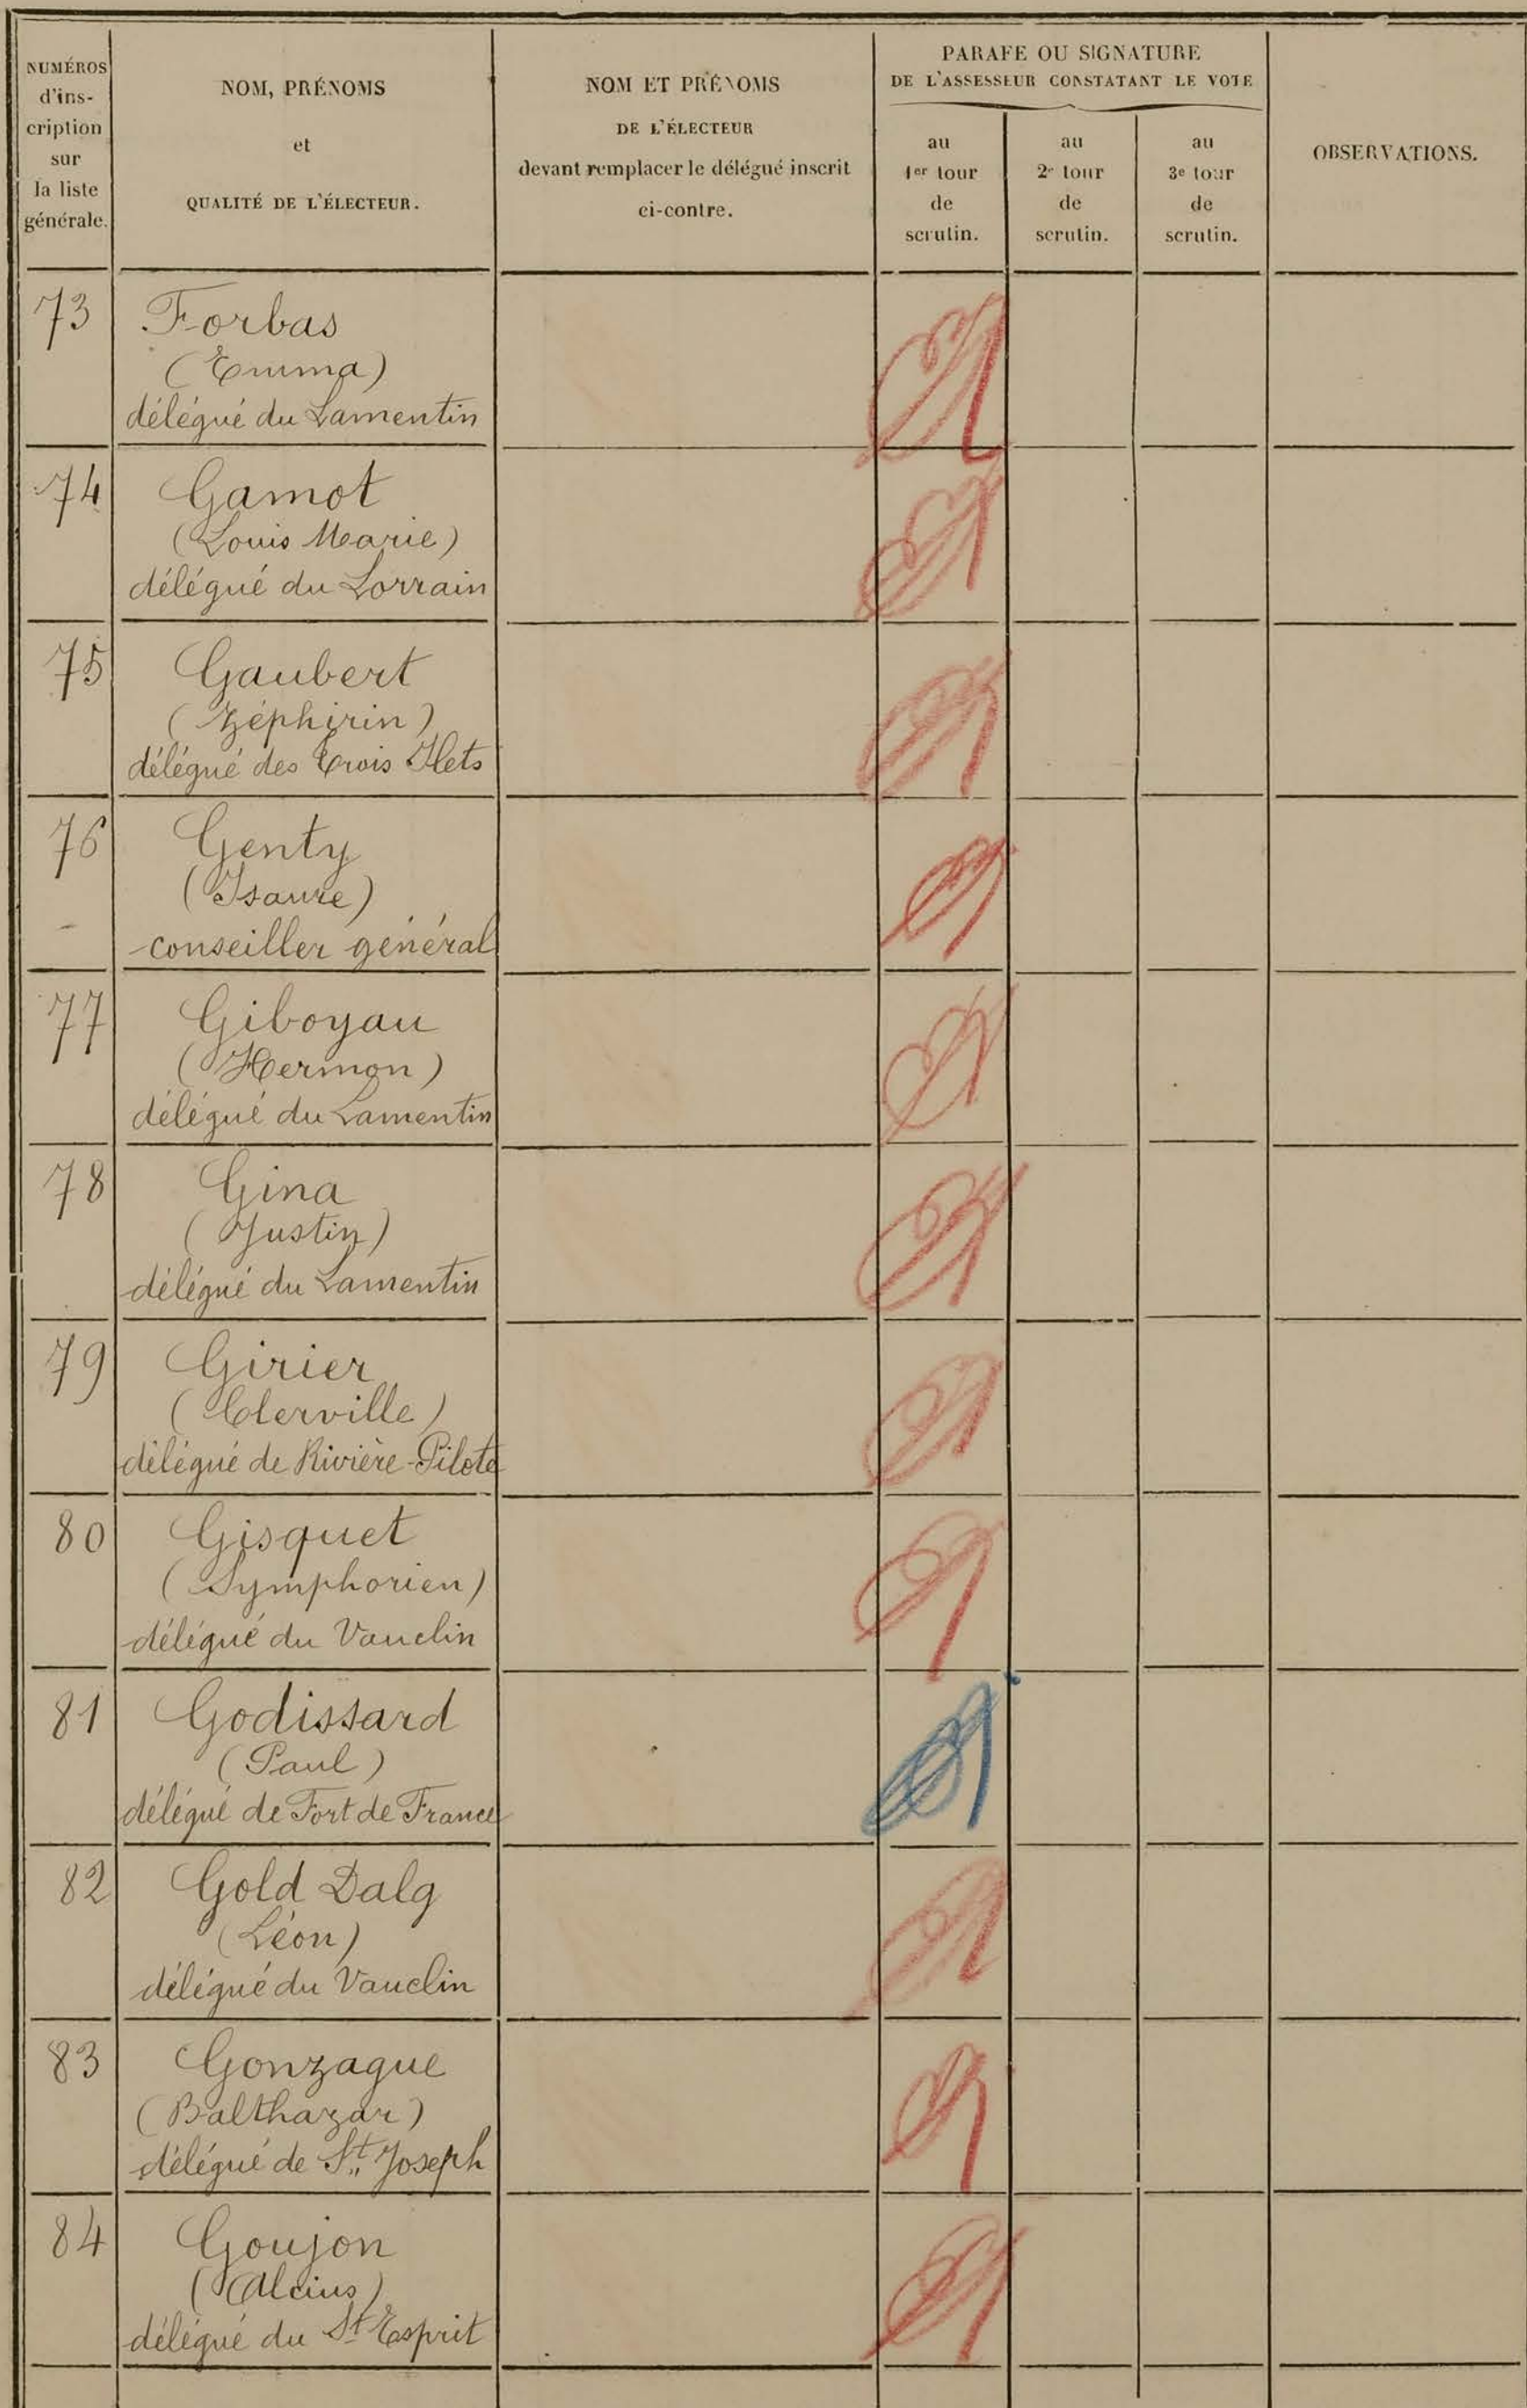 NUMÉROS
d'ins-
cription
sur
la liste
générale.
NOM, PRÉNOMS
et
QUALITÉ DE L'ÉLECTEUR.
NOM ET PRÉNOMS
DE L'ÉLECTEUR
devant remplacer le délégué inscrit
ci-contre.
PARAFE OU SIGNATURE
DE L'ASSESSEUR CONSTATANT LE VOTE
au
1er tour
de
scrutin.
au
2e tour
de
scrutin.
au
3e tour
de
scrutin.
OBSERVATIONS.
73 Forbas
(Emma)
délégué du Lamentin
74 Gamot
(Louis Marie)
délégué du Lorrain
75 Gaubert
(Zéphirin)
délégué des Trois Ilets
76 Genty
(Isaure)
conseiller général
77 Giboyau
(Hermon)
délégué du Lamentin
78 Gina
(Justin)
délégué du Lamentin
79 Girier
(Clerville)
délégué de Rivière-Pilote
80 Gisquet
(Symphorien)
délégué du Vauclin
81 Godissard
(Paul)
délégué de Fort de France
82 Gold Dalg
(Léon)
délégué du Vauclin
83 Gonzague
(Balthazar)
délégué de St. Joseph
84 Goujon
(Alcius)
délégué du St Esprit